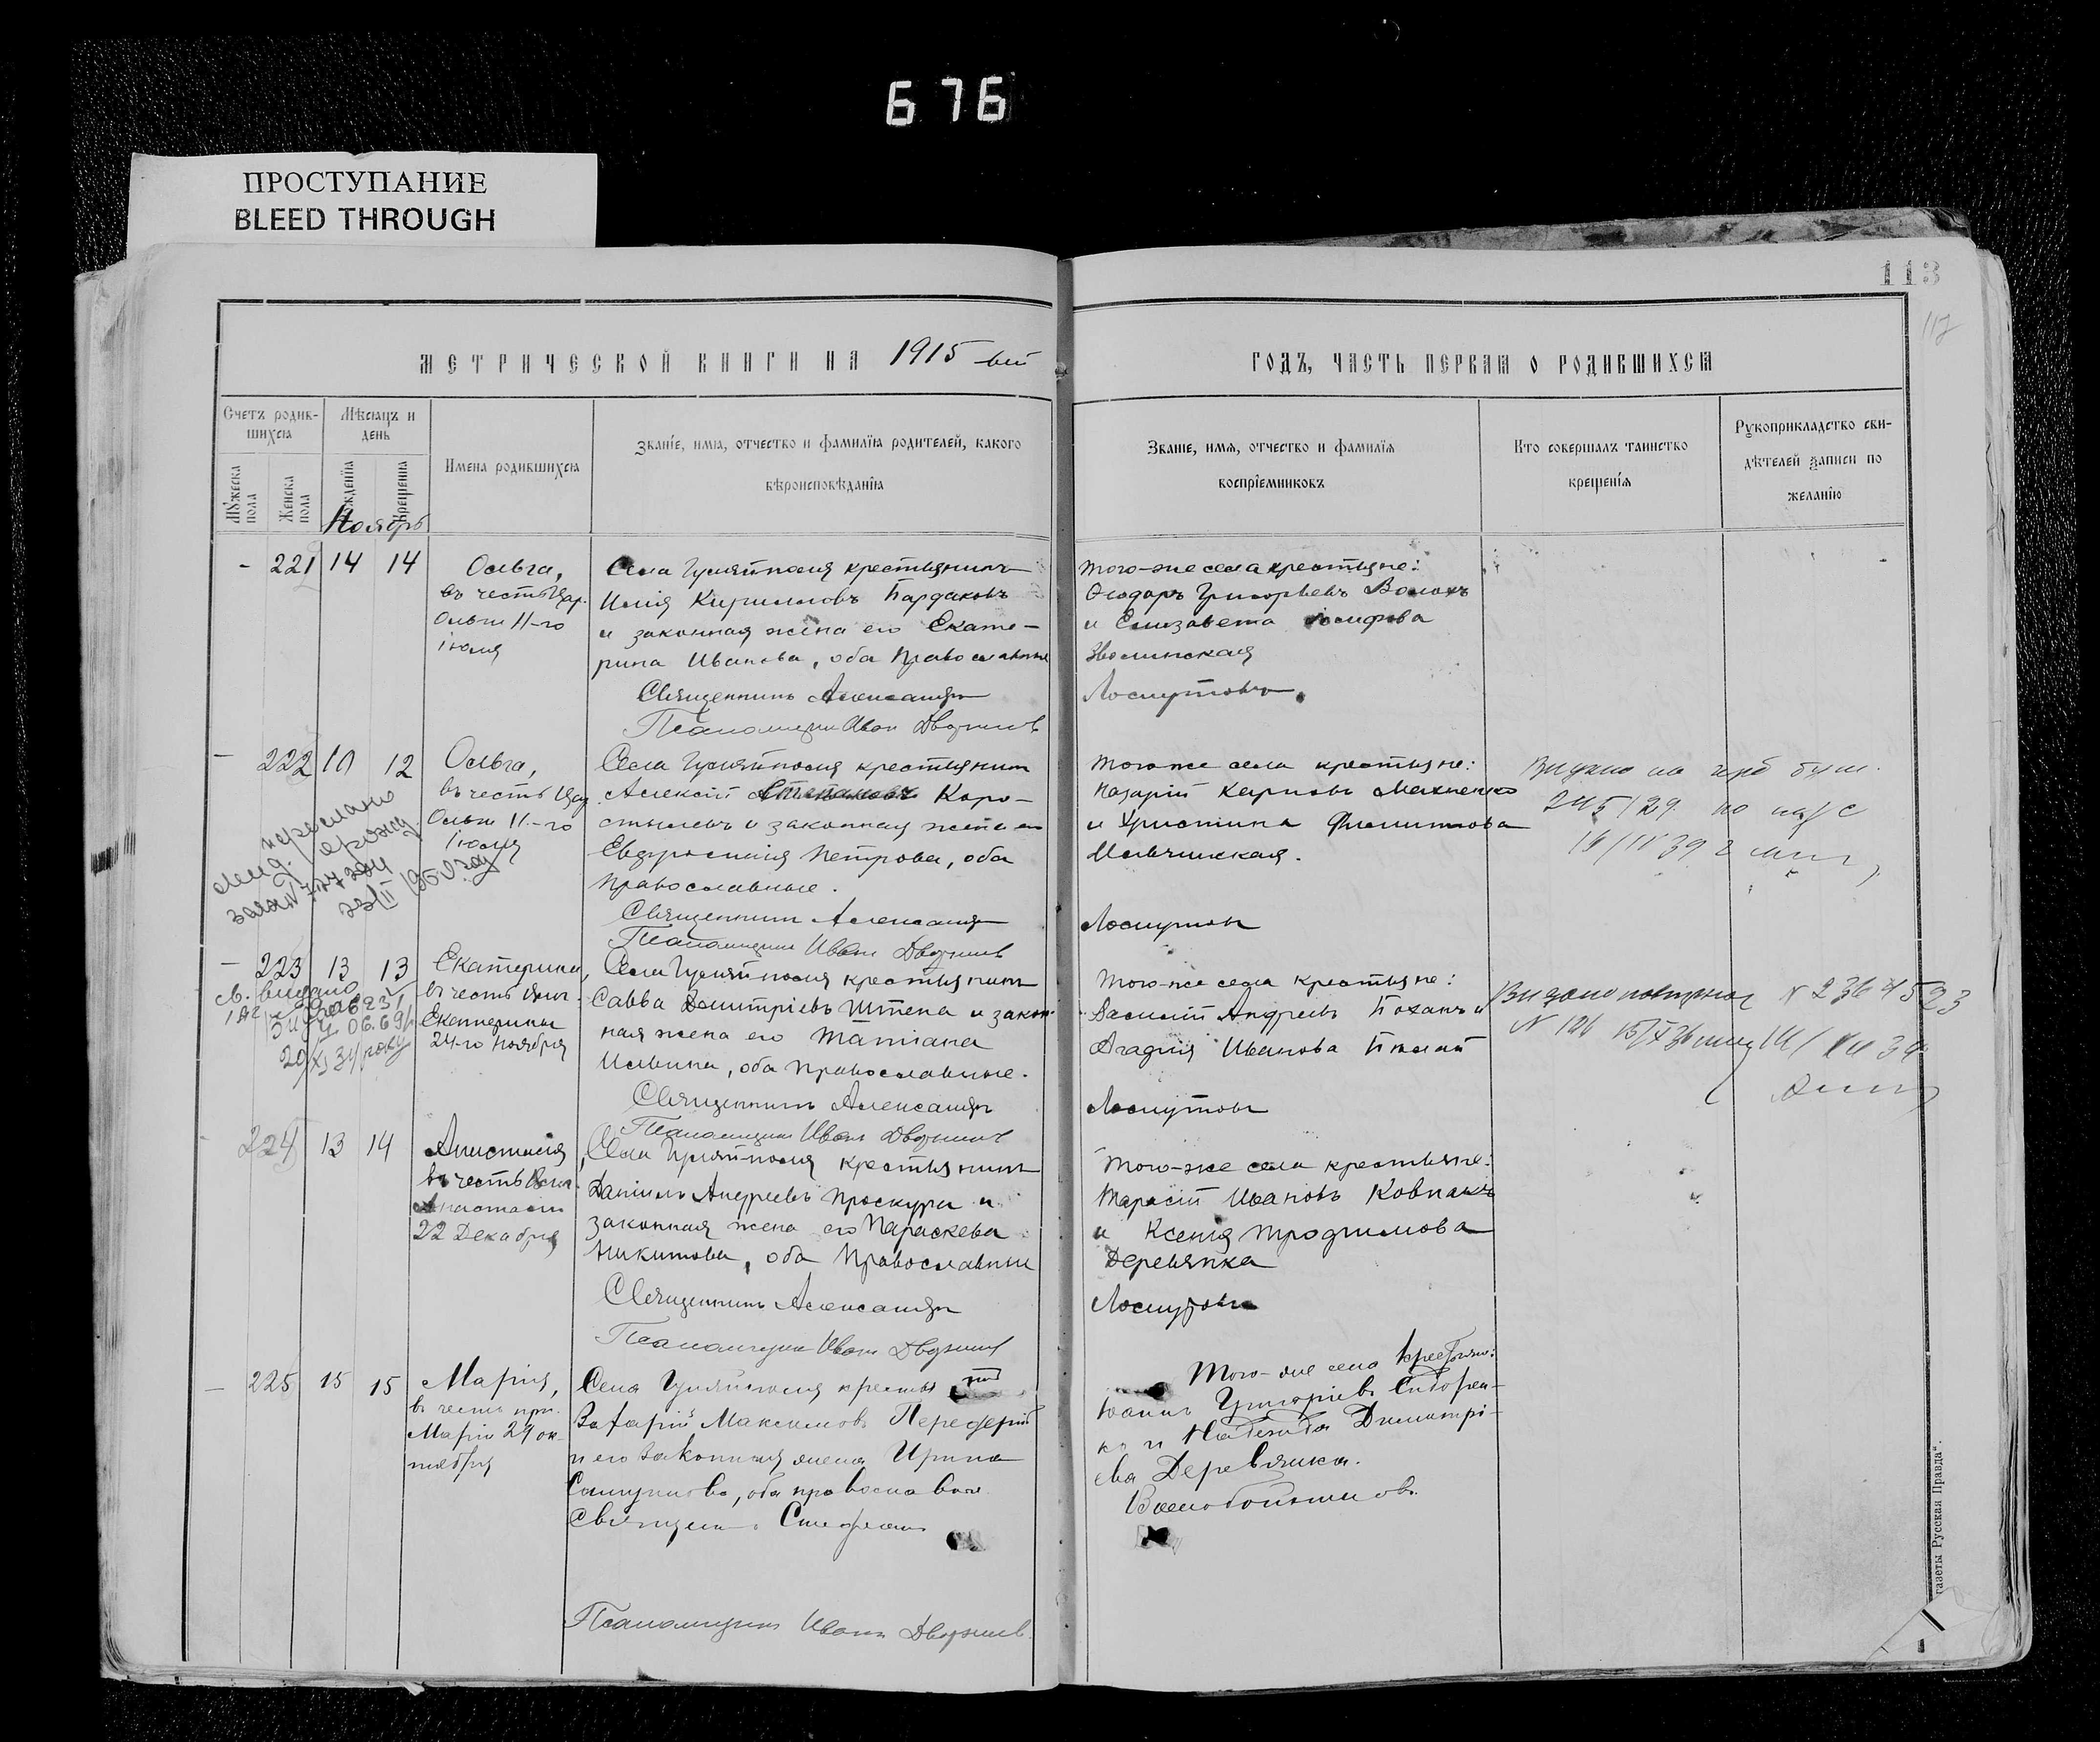 676
ПРОСТУПАНИЕ
BLEED THROUGH
113
117
МЕТРИЧЕСКОЙ КНИГИ НА 1915 ый
ГОДЪ, ЧАСТЬ ПЕРВАЯ О РОДИВШИХСЯ
Счетъ родив-
шихся
Мужеска пола
Женска пола
Мѣсяцъ и
день
Рожденія
Крещенія
Имена родившихся
Званіе, имя, отчество и фамилія родителей, какого
вѣроисповѣданія
Званіе, имя, отчество и фамилія
воспріемниковъ
Кто совершалъ таинство
крещенія
Рукоприкладство сви-
дѣтелей записи по
желанію
Ноябрь
- 221 14 14
Ольга,
въ честь Цар.
Ольги 11-го
іюля
Села Гуляйполя крестьянинъ
Илія Кирилловъ Бардаковъ
и законная жена его Екате-
рина Иванова, оба православные
Священникъ Александръ
Псаломщикъ Иван Дворников
Того-же села крестьяне:
Ѳеодоръ Григорьевъ Волохъ
и Елизавета Іосифова
Зволинская
Лоскутовъ
- 222 10 12
Ольга,
въ честь Цар
Ольги 11-го
іюля
Села Гуляйполя крестьянинъ
Алексій Степановъ Коро-
стылевъ и законная жена его
Евфросинія Петрова, оба
православные.
Священникъ Александръ
Псаломщикъ Иванъ Дворников
Того-же села крестьяне:
Назарій Карповъ Махненко
и Христина Филиппова
Мельчинская.
Лоскутовъ
245/29.
- 223 13 13
Екатерина,
въ честь Вмч.
Екатерины
24-го ноября
св. видано
20/XI 34 року
Села Гуляйполя крестьянинъ
Савва Димитріевъ Штепа и закон-
ная жена его Татіана
Ильина, оба православные.
Священникъ Александръ
Псаломщикъ Иванъ Дворников
Того-же села крестьяне:
Василій Андреевъ Коханъ и
Агафія Иванова
Лоскутовъ
Видано повторное
224 13 14
Анастасія,
въ честь Вмч.
Анастасіи
22 Декабря
Села Гуляйполя крестьянинъ
Даніилъ Андреевъ Проскура и
законная жена его Параскева
Никитова, оба православные
Священникъ Александръ
Псаломщикъ Иванъ Дворников
Того-же села крестьяне:
Тарасій Ивановъ Ковпакъ
и Ксенія Трофимова
Деревянка
Лоскутовъ
- 225 15 15
Марія,
въ честь прп.
Маріи 29 ок-
тября
Села Гуляйполя крестьянинъ
Захарій Максимовъ Передерій
и его законная жена Ирина
Самуилова, оба православные
Священникъ Стефанъ
Псаломщикъ Иванъ Дворников.
Того-же села крестьяне:
Іоаннъ Григоріевъ Сидорен-
ко и Надежда Димитрі-
ева Деревянка.
Воинобойниковъ.
газеты Русская Правда".